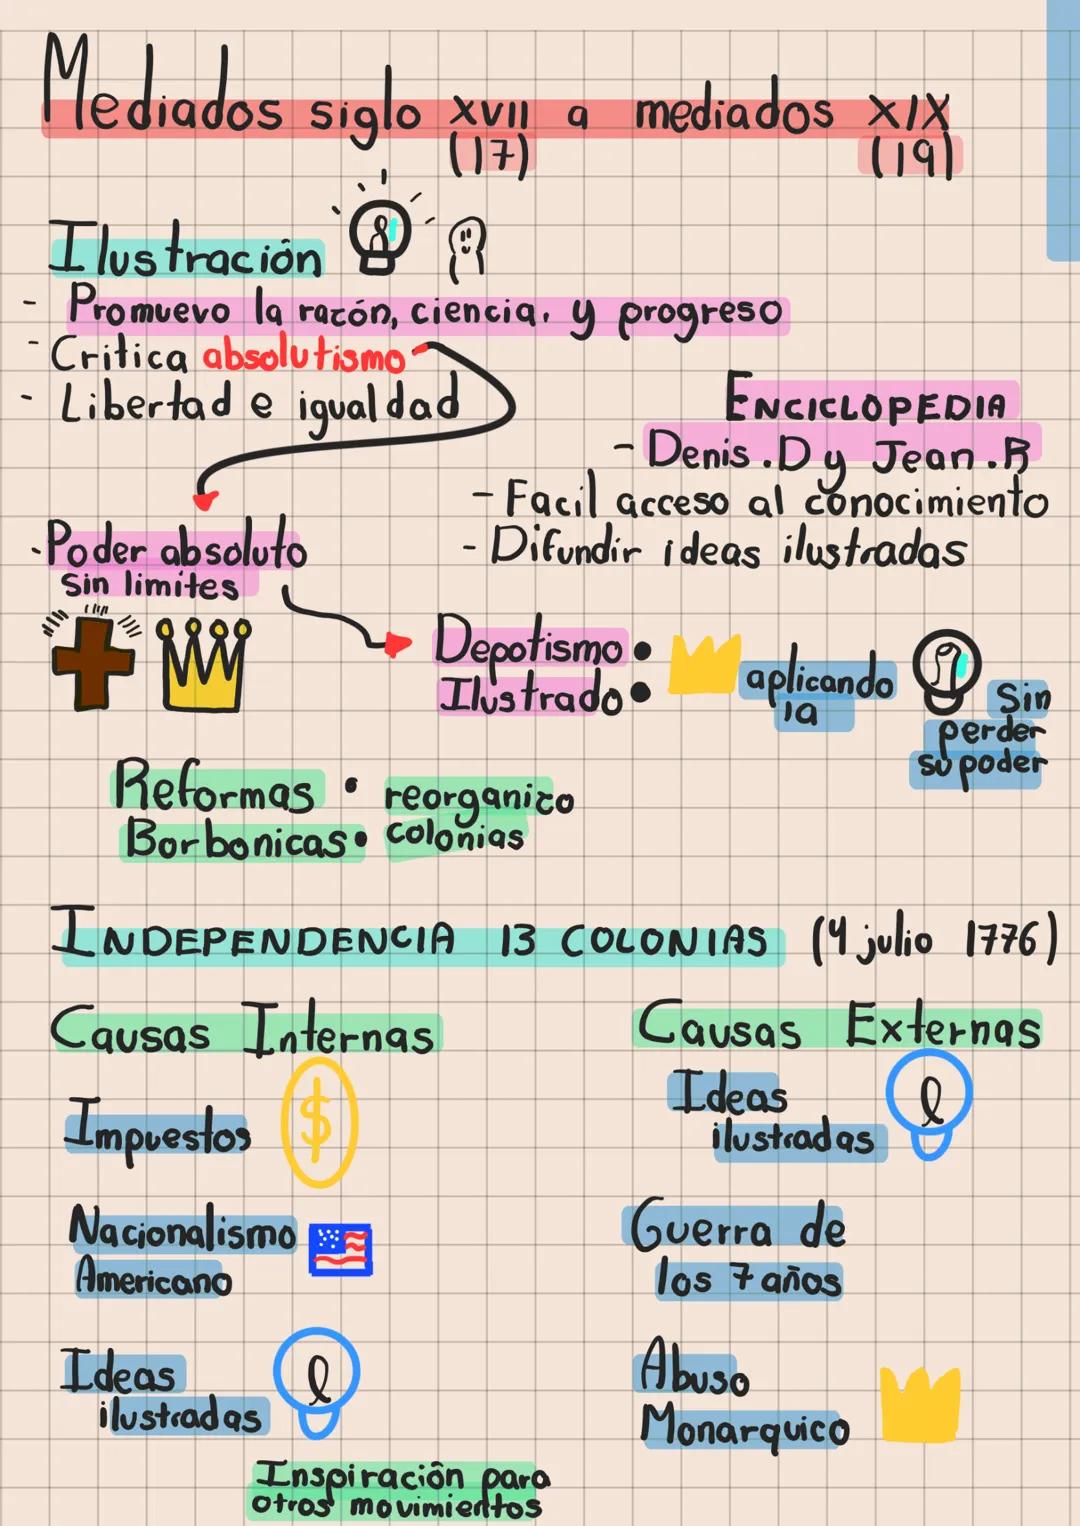 Mediados siglo XVII a mediados XIX
(17) (19)
Ilustración
- Promuevo la razón, ciencia, y progreso
- Critica absolutismo
- Libertad e igualdad
ENCICLOPEDIA
- Denis.D y Jean.R
- Facil acceso al conocimiento
- Difundir ideas ilustradas
· Poder absoluto
sin limites
Depotismo :
Ilustrado
aplicando
la
Sin
perder
su poder
Reformas :
Borbonicas
reorganizo
colonias
INDEPENDENCIA 13 COLONIAS (4 julio 1776)
Causas Internas
Impuestos
$
Nacionalismo
Americano
Ideas
ilustradas
Causas Externas
Ideas
ilustradas
Guerra de
los 7 años
Abuso
Monarquico
Inspiración para
otros movimientos